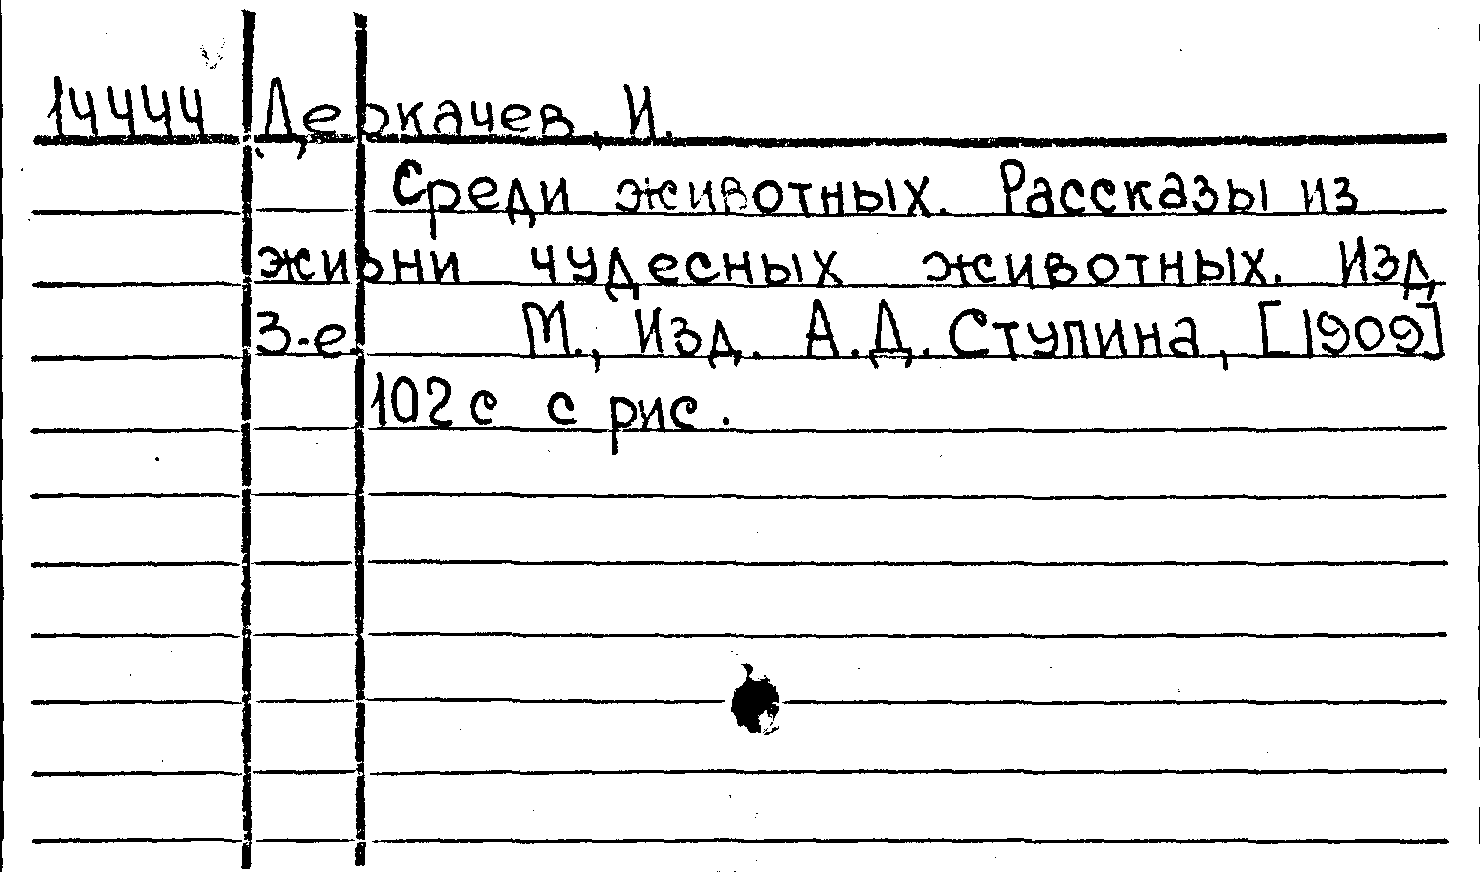 14444 Деркачев, И.
Среди животных. Рассказы из
жизни чудесных животных. Изд
3-е. М., Изд. А.Д. Ступина, [1909]
102 с с рис.